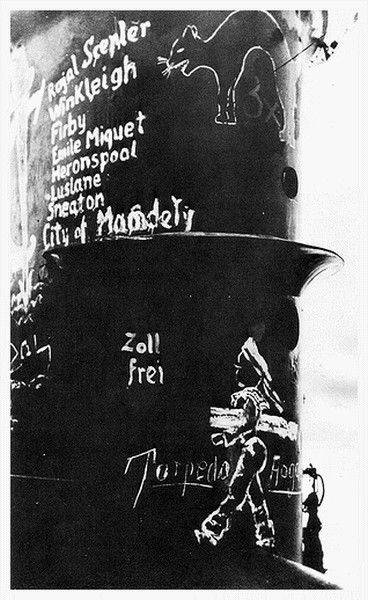 Royal Scepter
Winkleigh
Firby
Emile Miquet
Heronspool
Luslane
Sneaton
City of Mandely
3x
Zoll
frei
Torpedo